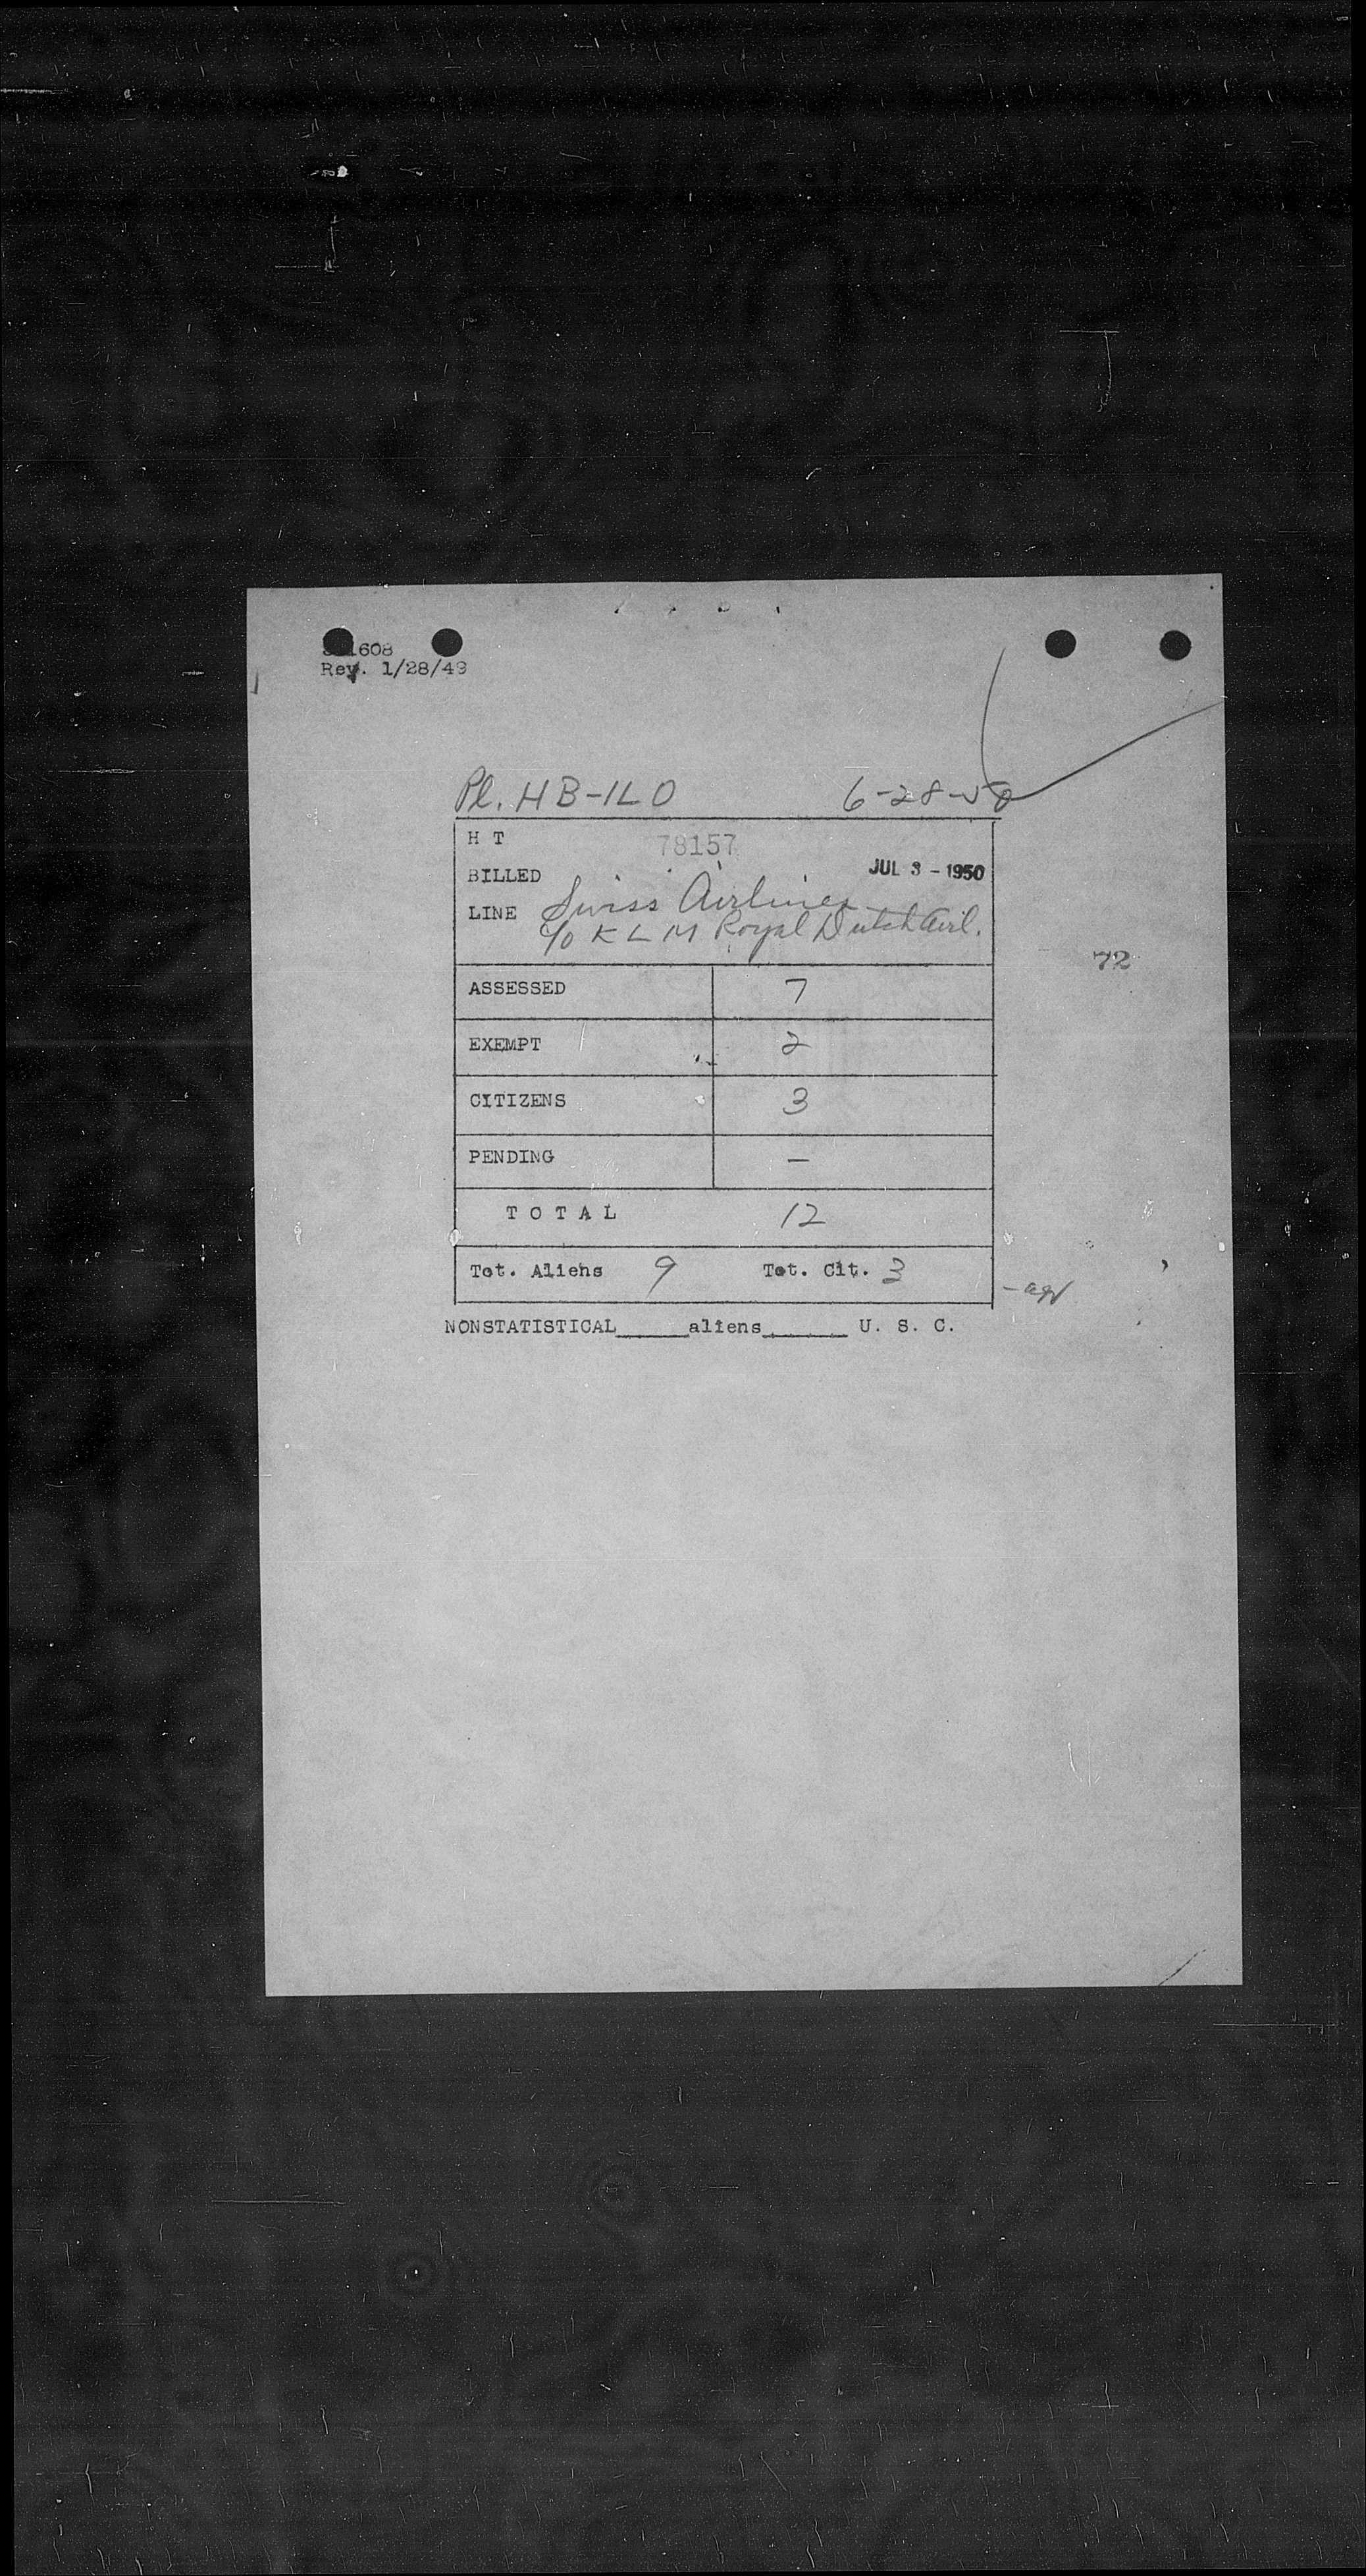 1608
Rev. 1/28/49
Pl. HB-ILO 6-28-50
H T 78157
BILLED JUL 3 - 1950
LINE Swiss Airlines
c/o KLM Royal Dutch Airl.
72
ASSESSED 7
EXEMPT 2
CITIZENS 3
PENDING —
T O T A L 12
Tot. Aliens 9 Tot. Cit. 3
NONSTATISTICAL_____aliens______ U. S. C.